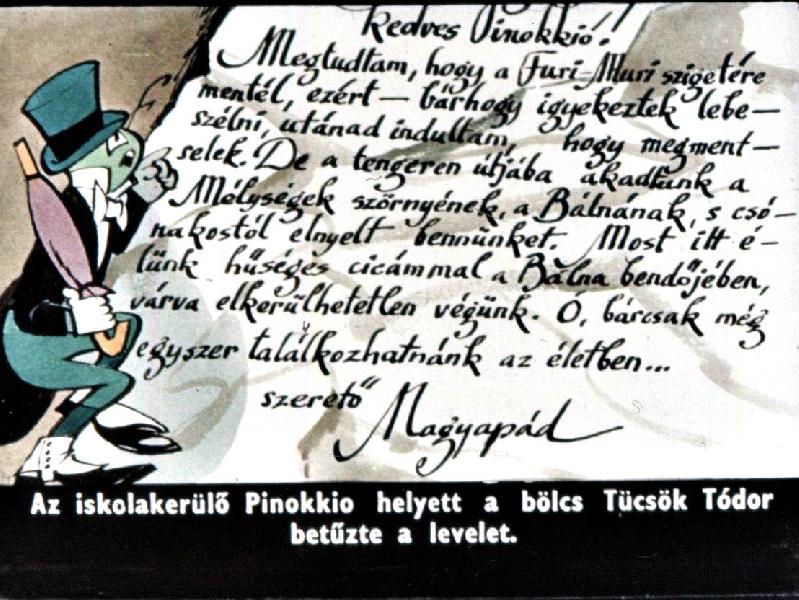 kedves Pinokkió!
Megtudtam, hogy a Furi-Muri szigetére
mentél, ezért — bárhogy igyekeztek lebe—
szélni, utánad indultam, hogy megment—
selek. De a tengeren útjába akadtunk a
Mélységek szörnyének, a Bálnának, s csó—
nakostól elnyelt bennünket. Most itt é—
lünk hűséges cicámmal a Bálna bendőjében,
várva elkerülhetetlen végünk. Ó, bárcsak még
egyszer találkozhatnánk az életben...
szerető Nagyapád
Az iskolakerülő Pinokkio helyett a bölcs Tücsök Tódor
betűzte a levelet.